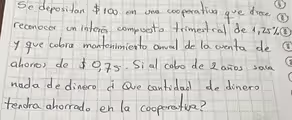 Se depositan $100 en una cooperativa que dice
reconocer un interés compuesto trimestral de 1,25%
y que cobra mantenimiento anual de la cuenta de
ahorros de $0,75. Si al cabo de 2 años saca
nada de dinero ¿Que cantidad de dinero
tendra ahorrado en la cooperativa?